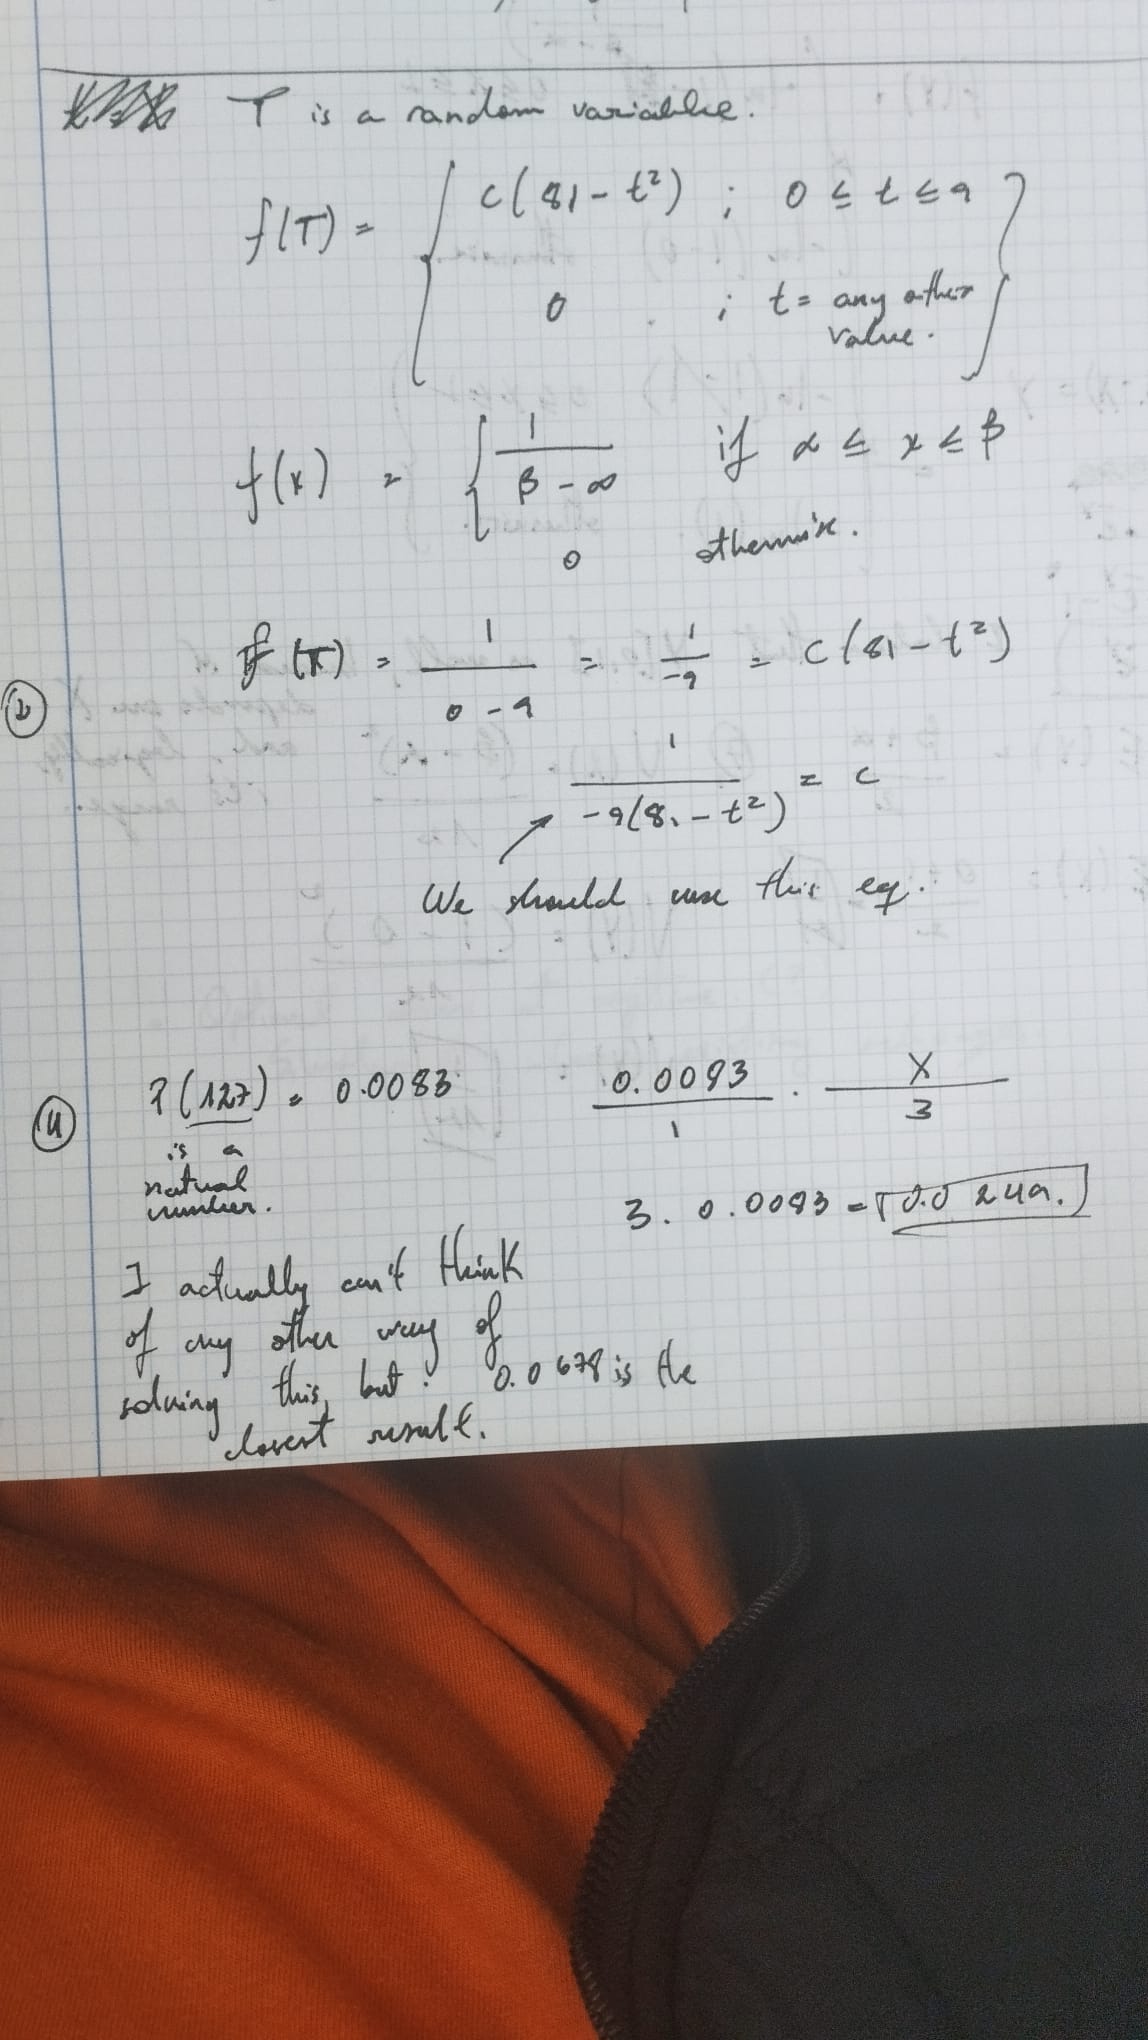 T is a random variablke.
f(T) = { c(81 - t²) ; 0 ≤ t ≤ 9
0 ; t = any other value. }
f(x) = { 1 / (β - ∞) if α ≤ x ≤ β
0 otherwise.
f(T) = 1 / (0 - 9) = 1 / -9 = c(81 - t²)
1 / (-9(81 - t²)) = c
We should use this eq.
P(127) = 0.0083
is a
natural
number.
0.0083 / 1 . X / 3
3. 0.0083 = 0.0249.
I actually can't think
of any other way of
solving this, but. 0.0678 is the
closest result.